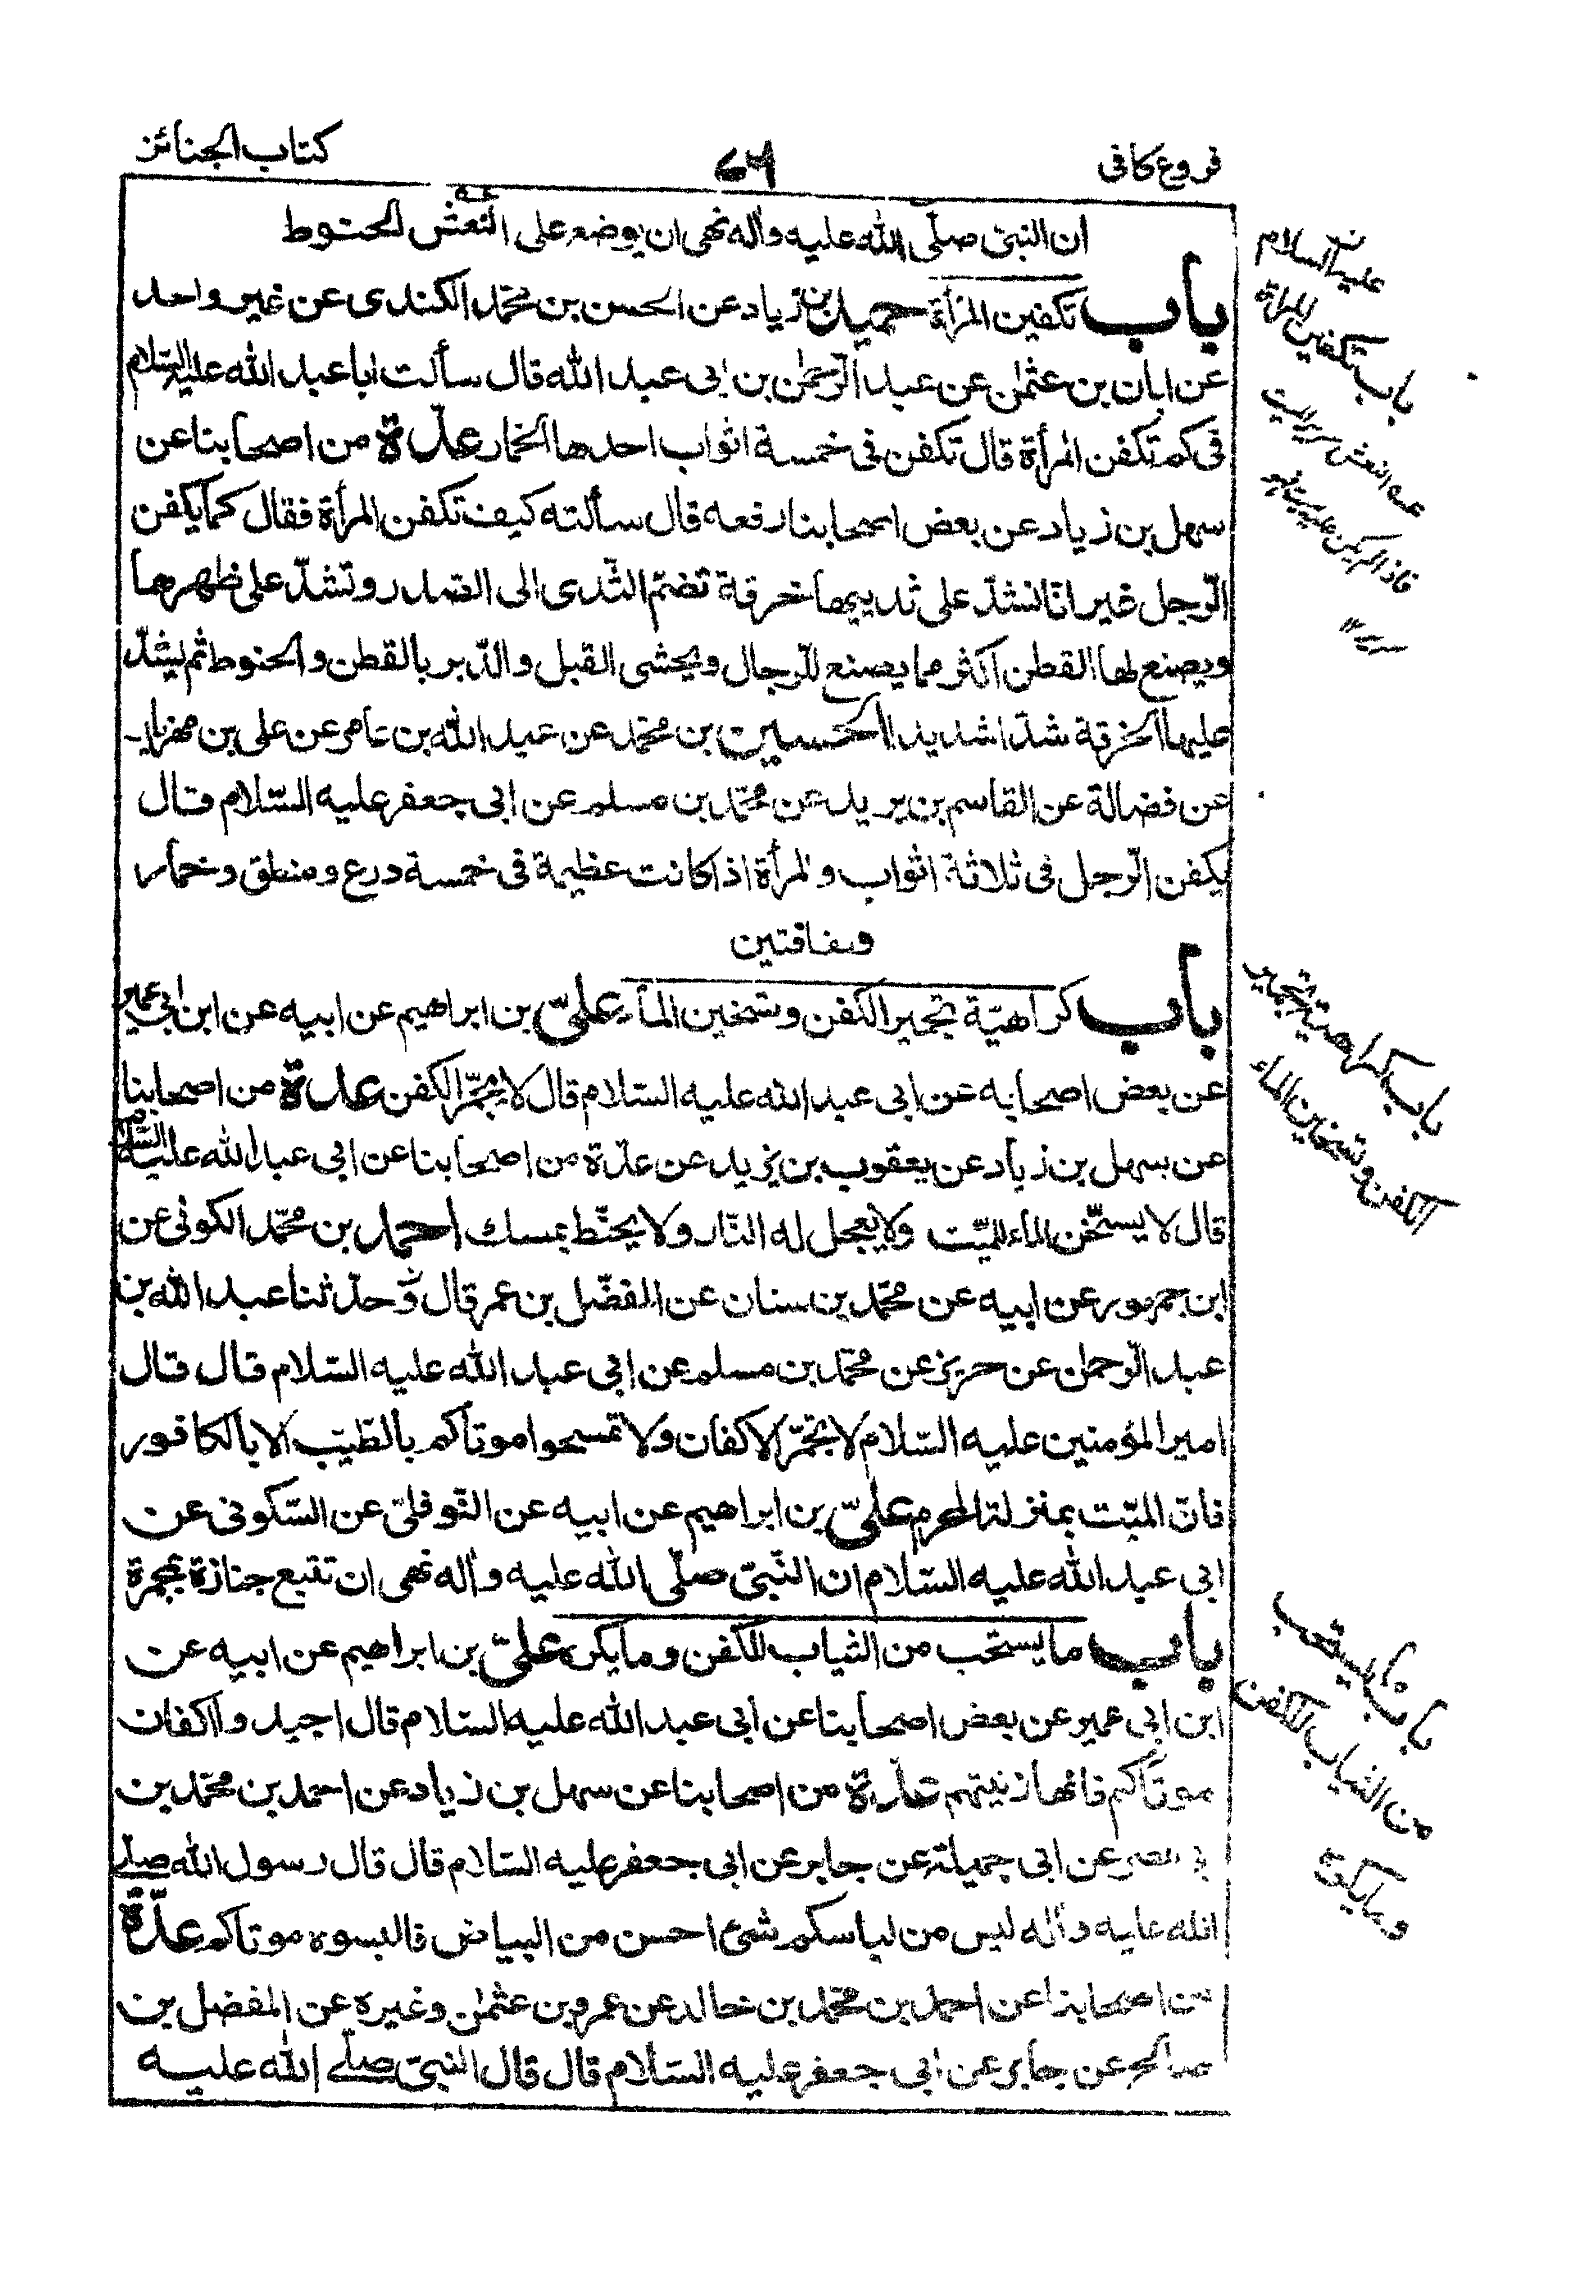 فروع كافى
٧٦
كتاب الجنائز
ان النبىّ صلّى الله عليه وآله نهى ان يوضع على النّعش الحنوط
باب تكفين المرأة حميد بن زياد عن الحسن بن محمّد الكندى عن غير واحد
عن ابان بن عثمٰن عن عبد الرّحمٰن بن ابى عبد الله قال سألت ابا عبد الله عليه السّلام
فى كم تكفن المرأة قال تكفن فى خمسة اثواب احدها الخمار عدّة من اصحابنا عن
سهل بن زياد عن بعض اصحابنا رفعه قال سألته كيف تكفن المرأة فقال كما يكفن
الرّجل غير انّا نشدّ على ثدييها خرقة تضمّ الثّدى الى الصّدر وتشدّ على ظهرها
ويصنع لها القطن اكثر مما يصنع للرّجال ويحشى القبل والدّبر بالقطن والحنوط ثم يشدّ
عليها الخرقة شدّا شديدا الحسين بن محمّد عن عبد الله بن عامر عن على بن مهزيار
عن فضالة عن القاسم بن بريد عن محمّد بن مسلم عن ابى جعفر عليه السّلام قال
يكفن الرّجل فى ثلاثة اثواب والمرأة اذا كانت عظيمة فى خمسة درع ومنطق وخمار
ولفافتين
باب كراهيّة تجمير الكفن وتسخين الماء علىّ بن ابراهيم عن ابيه عن ابن ابى عمير
عن بعض اصحابه عن ابى عبد الله عليه السّلام قال لا يجمّر الكفن عدة من اصحابنا
عن سهل بن زياد عن يعقوب بن يزيد عن عدّة من اصحابنا عن ابى عبد الله عليه السّلام
قال لا يسخّن الماء للميّت ولا يعجل له النّار ولا يحنّط بمسك احمد بن محمّد الكوفى عن
ابن جمهور عن ابيه عن محمّد بن سنان عن المفضّل بن عمر قال وحدّثنا عبد الله بن
عبد الرّحمان عن حريز عن محمّد بن مسلم عن ابى عبد الله عليه السّلام قال قال
امير المؤمنين عليه السّلام لا تجمّر الاكفان ولا تمسحوا موتاكم بالطّيب الا بالكافور
فانّ الميّت بمنزلة المحرم علىّ بن ابراهيم عن ابيه عن النّوفلىّ عن السّكونى عن
ابى عبد الله عليه السّلام ان النّبىّ صلّى الله عليه وآله نهى ان تتبع جنازة بمجمرة
باب ما يستحب من الثياب للكفن وما يكره علىّ بن ابراهيم عن ابيه عن
ابن ابى عمير عن بعض اصحابنا عن ابى عبد الله عليه السّلام قال اجيد وا اكفان
موتاكم فانها زينتهم عدّة من اصحابنا عن سهل بن زياد عن احمد بن محمّد بن
ابى نصر عن ابى جميلة عن جابر عن ابى جعفر عليه السّلام قال قال رسول الله صلّى
الله عليه وآله ليس من لباسكم شئ احسن من البياض فالبسوه موتاكم عدّة
من اصحابنا عن احمد بن محمّد بن خالد عن عمرو بن عثمٰن وغيره عن المفضل بن
صالح عن جابر عن ابى جعفر عليه السّلام قال قال النبىّ صلّى الله عليه
باب تكفين المرأة
باب كراهيّة تجمير
الكفن وتسخين الماء
باب ما يستحب
من الثياب للكفن
وما يكره